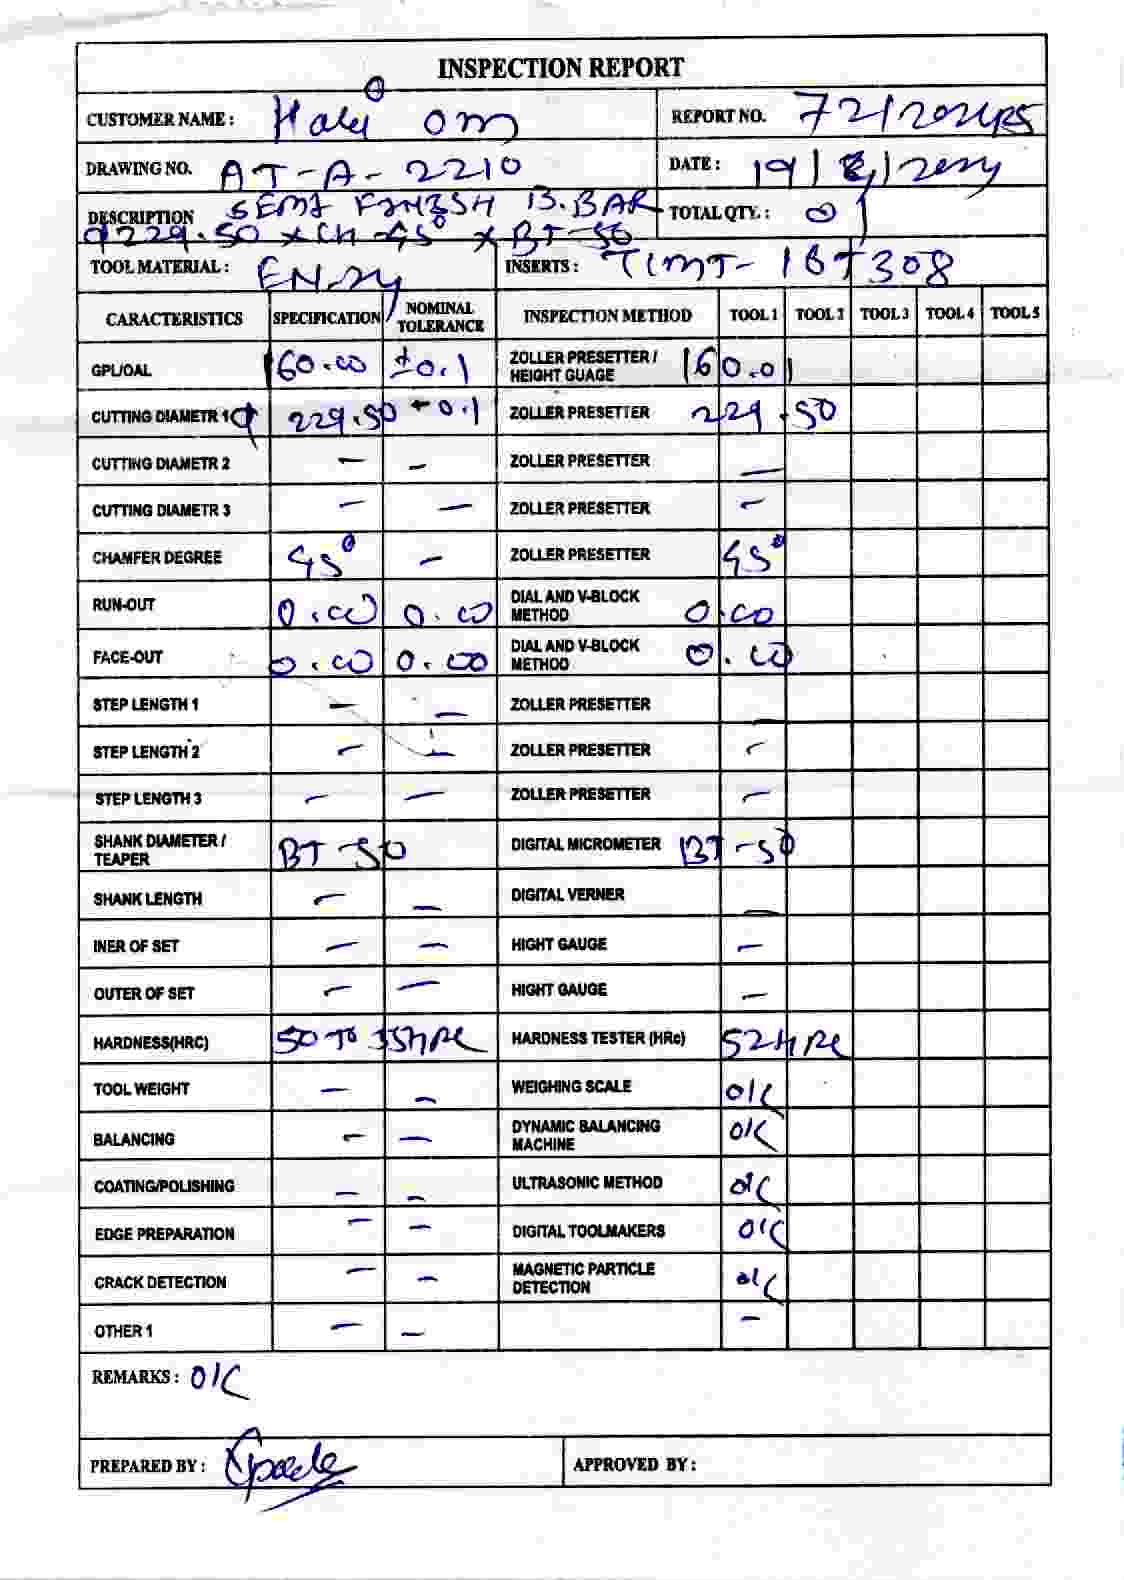 INSPECTION REPORT
CUSTOMER NAME : om
REPORT NO. 72/
DRAWING NO. AT-A-2210
DATE : 19/
DESCRIPTION SEMI FINISH B.BAR
φ229.50 x CH-45° x BT-50
TOTAL QTY. :
TOOL MATERIAL : EN-24
INSERTS : 16T308
CARACTERISTICS SPECIFICATION NOMINAL TOLERANCE INSPECTION METHOD TOOL 1 TOOL 2 TOOL 3 TOOL 4 TOOL 5
GPL/OAL 160.00 ±0.1 ZOLLER PRESETTER / HEIGHT GUAGE 160.01
CUTTING DIAMETR 1 φ 229.50 +0.1 ZOLLER PRESETTER 229.50
CUTTING DIAMETR 2 – – ZOLLER PRESETTER –
CUTTING DIAMETR 3 – – ZOLLER PRESETTER –
CHAMFER DEGREE 45° – ZOLLER PRESETTER 45°
RUN-OUT 0.00 0.00 DIAL AND V-BLOCK METHOD 0.00
FACE-OUT 0.00 0.00 DIAL AND V-BLOCK METHOD 0.00
STEP LENGTH 1 – – ZOLLER PRESETTER –
STEP LENGTH 2 – – ZOLLER PRESETTER –
STEP LENGTH 3 – – ZOLLER PRESETTER –
SHANK DIAMETER / TEAPER BT-50 DIGITAL MICROMETER BT-50
SHANK LENGTH – – DIGITAL VERNER –
INER OF SET – – HIGHT GAUGE –
OUTER OF SET – – HIGHT GAUGE –
HARDNESS(HRC) 50 TO 55HRC HARDNESS TESTER (HRc) 52HRC
TOOL WEIGHT – – WEIGHING SCALE OK
BALANCING – – DYNAMIC BALANCING MACHINE OK
COATING/POLISHING – – ULTRASONIC METHOD OK
EDGE PREPARATION – – DIGITAL TOOLMAKERS OK
CRACK DETECTION – – MAGNETIC PARTICLE DETECTION OK
OTHER 1 – – –
REMARKS : OK
PREPARED BY :
APPROVED BY :